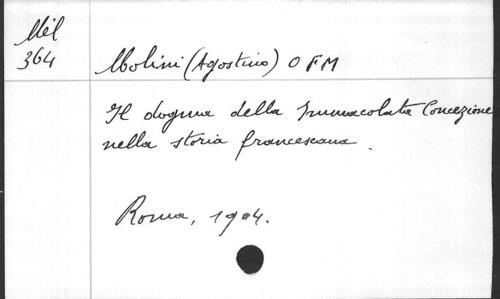 Mél
364
Molini (Agostino) O F M
Il dogma della Immacolata Concezione
nella storia francescana.
Roma, 1904.